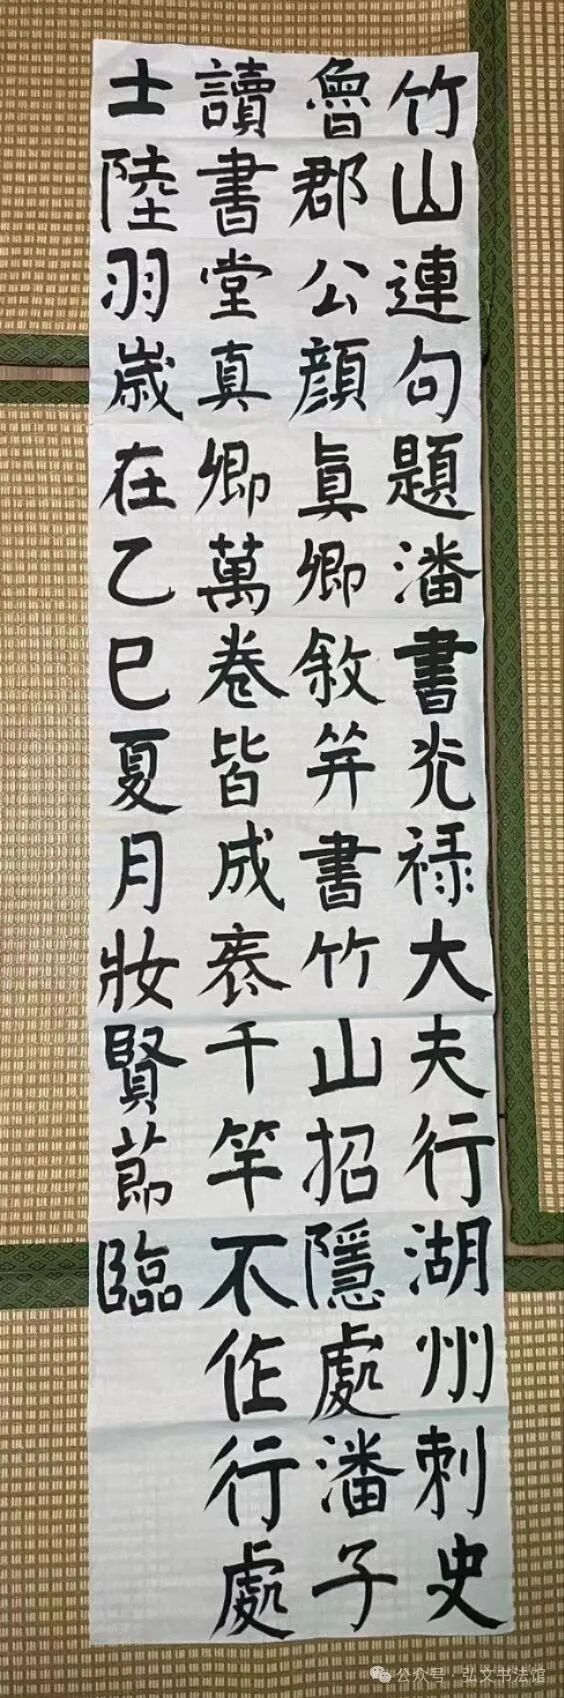 竹山連句題潘書光禄大夫行湖州刺史
魯郡公顔眞卿敘并書竹山招隱處潘子
讀書堂真卿萬卷皆成袠千竿不作行處
士陸羽歳在乙巳夏月妝賢莭臨
公众号·弘文书法馆